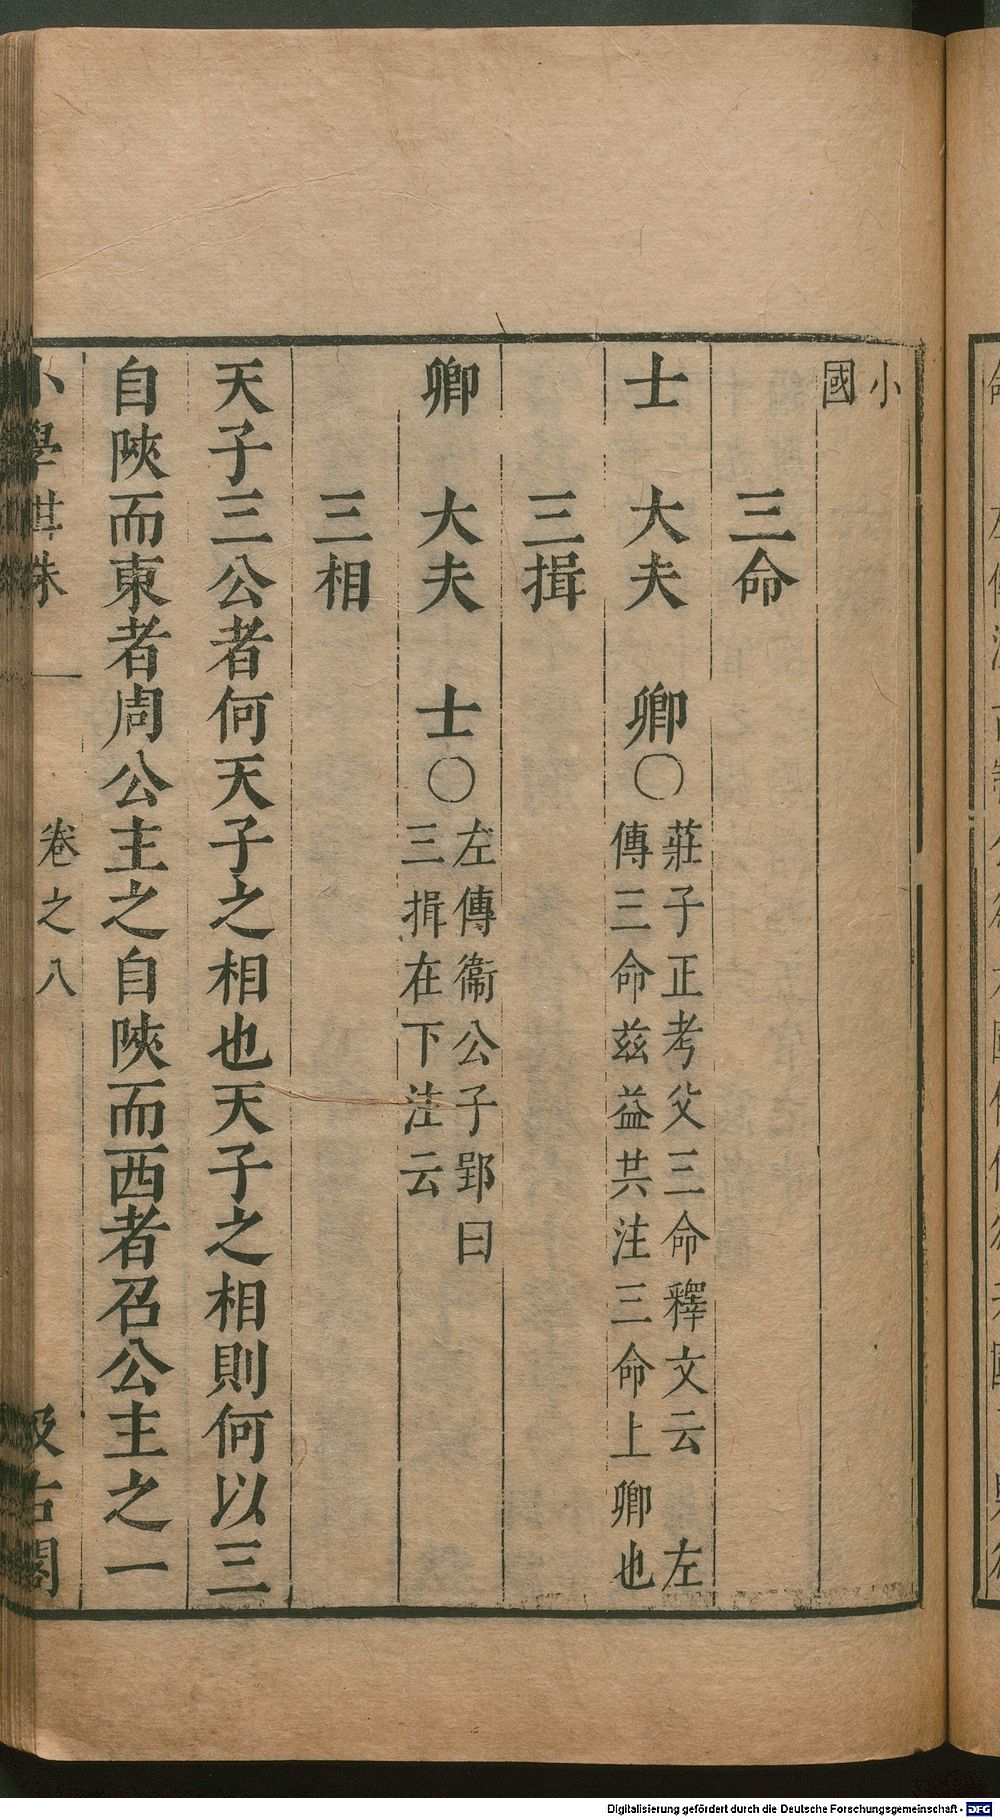 小
國
三命
士　大夫　卿○
莊子正考父三命釋文云　左
傳三命兹益共注三命上卿也
三揖
卿　大夫　士○
左傳衞公子郢曰
三揖在下注云
三相
天子三公者何天子之相也天子之相則何以三
自陜而東者周公主之自陜而西者召公主之一
小學紺珠　卷之八　汲古閣
Digitalisierung gefördert durch die Deutsche Forschungsgemeinschaft - DFG